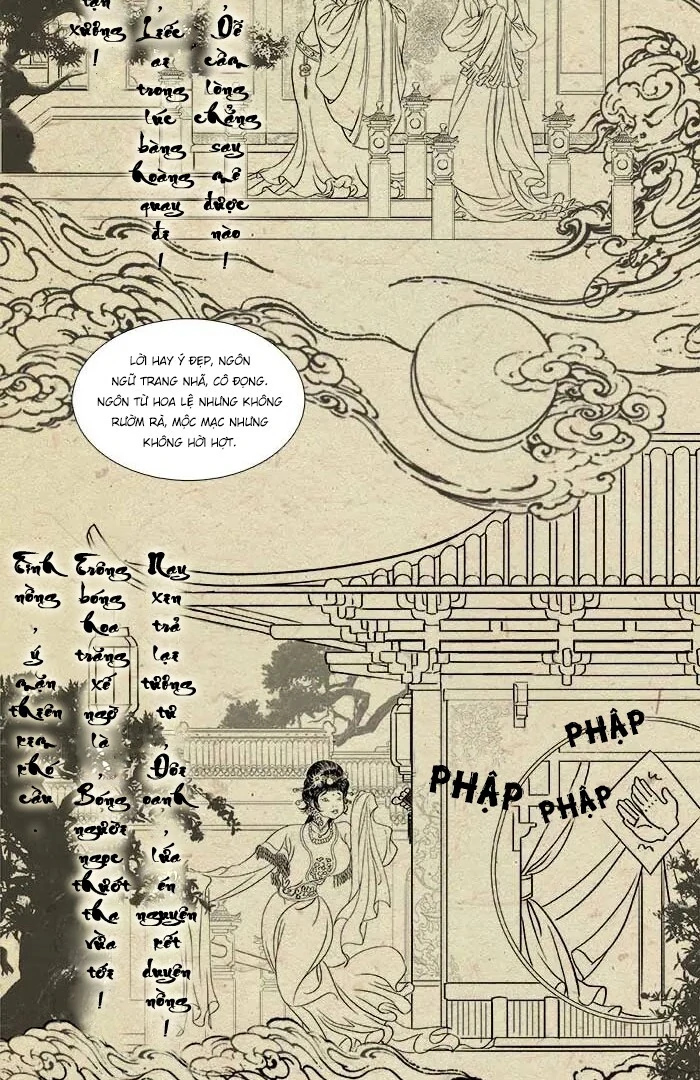 , Dễ cầm lòng chẳng say mê được nào !
, Liếc ai trong lúc bàng hoàng quay đi !
tận xương !
LỜI HAY Ý ĐẸP, NGÔN
NGỮ TRANG NHÃ, CÔ ĐỌNG.
NGÔN TỪ HOA LỆ NHƯNG KHÔNG
RƯỜM RÀ, MỘC MẠC NHƯNG
KHÔNG HỜI HỢT.
Nay xin trả lại tương tư , Đôi oanh , lứa én nguyện kết duyên nồng !
Trông bóng hoa trăng xế ngỡ là , Bóng người ngọc thướt tha vừa tới !
Tình nồng , ý mặn thiên kim khó cầu .
PHẬP
PHẬP
PHẬP